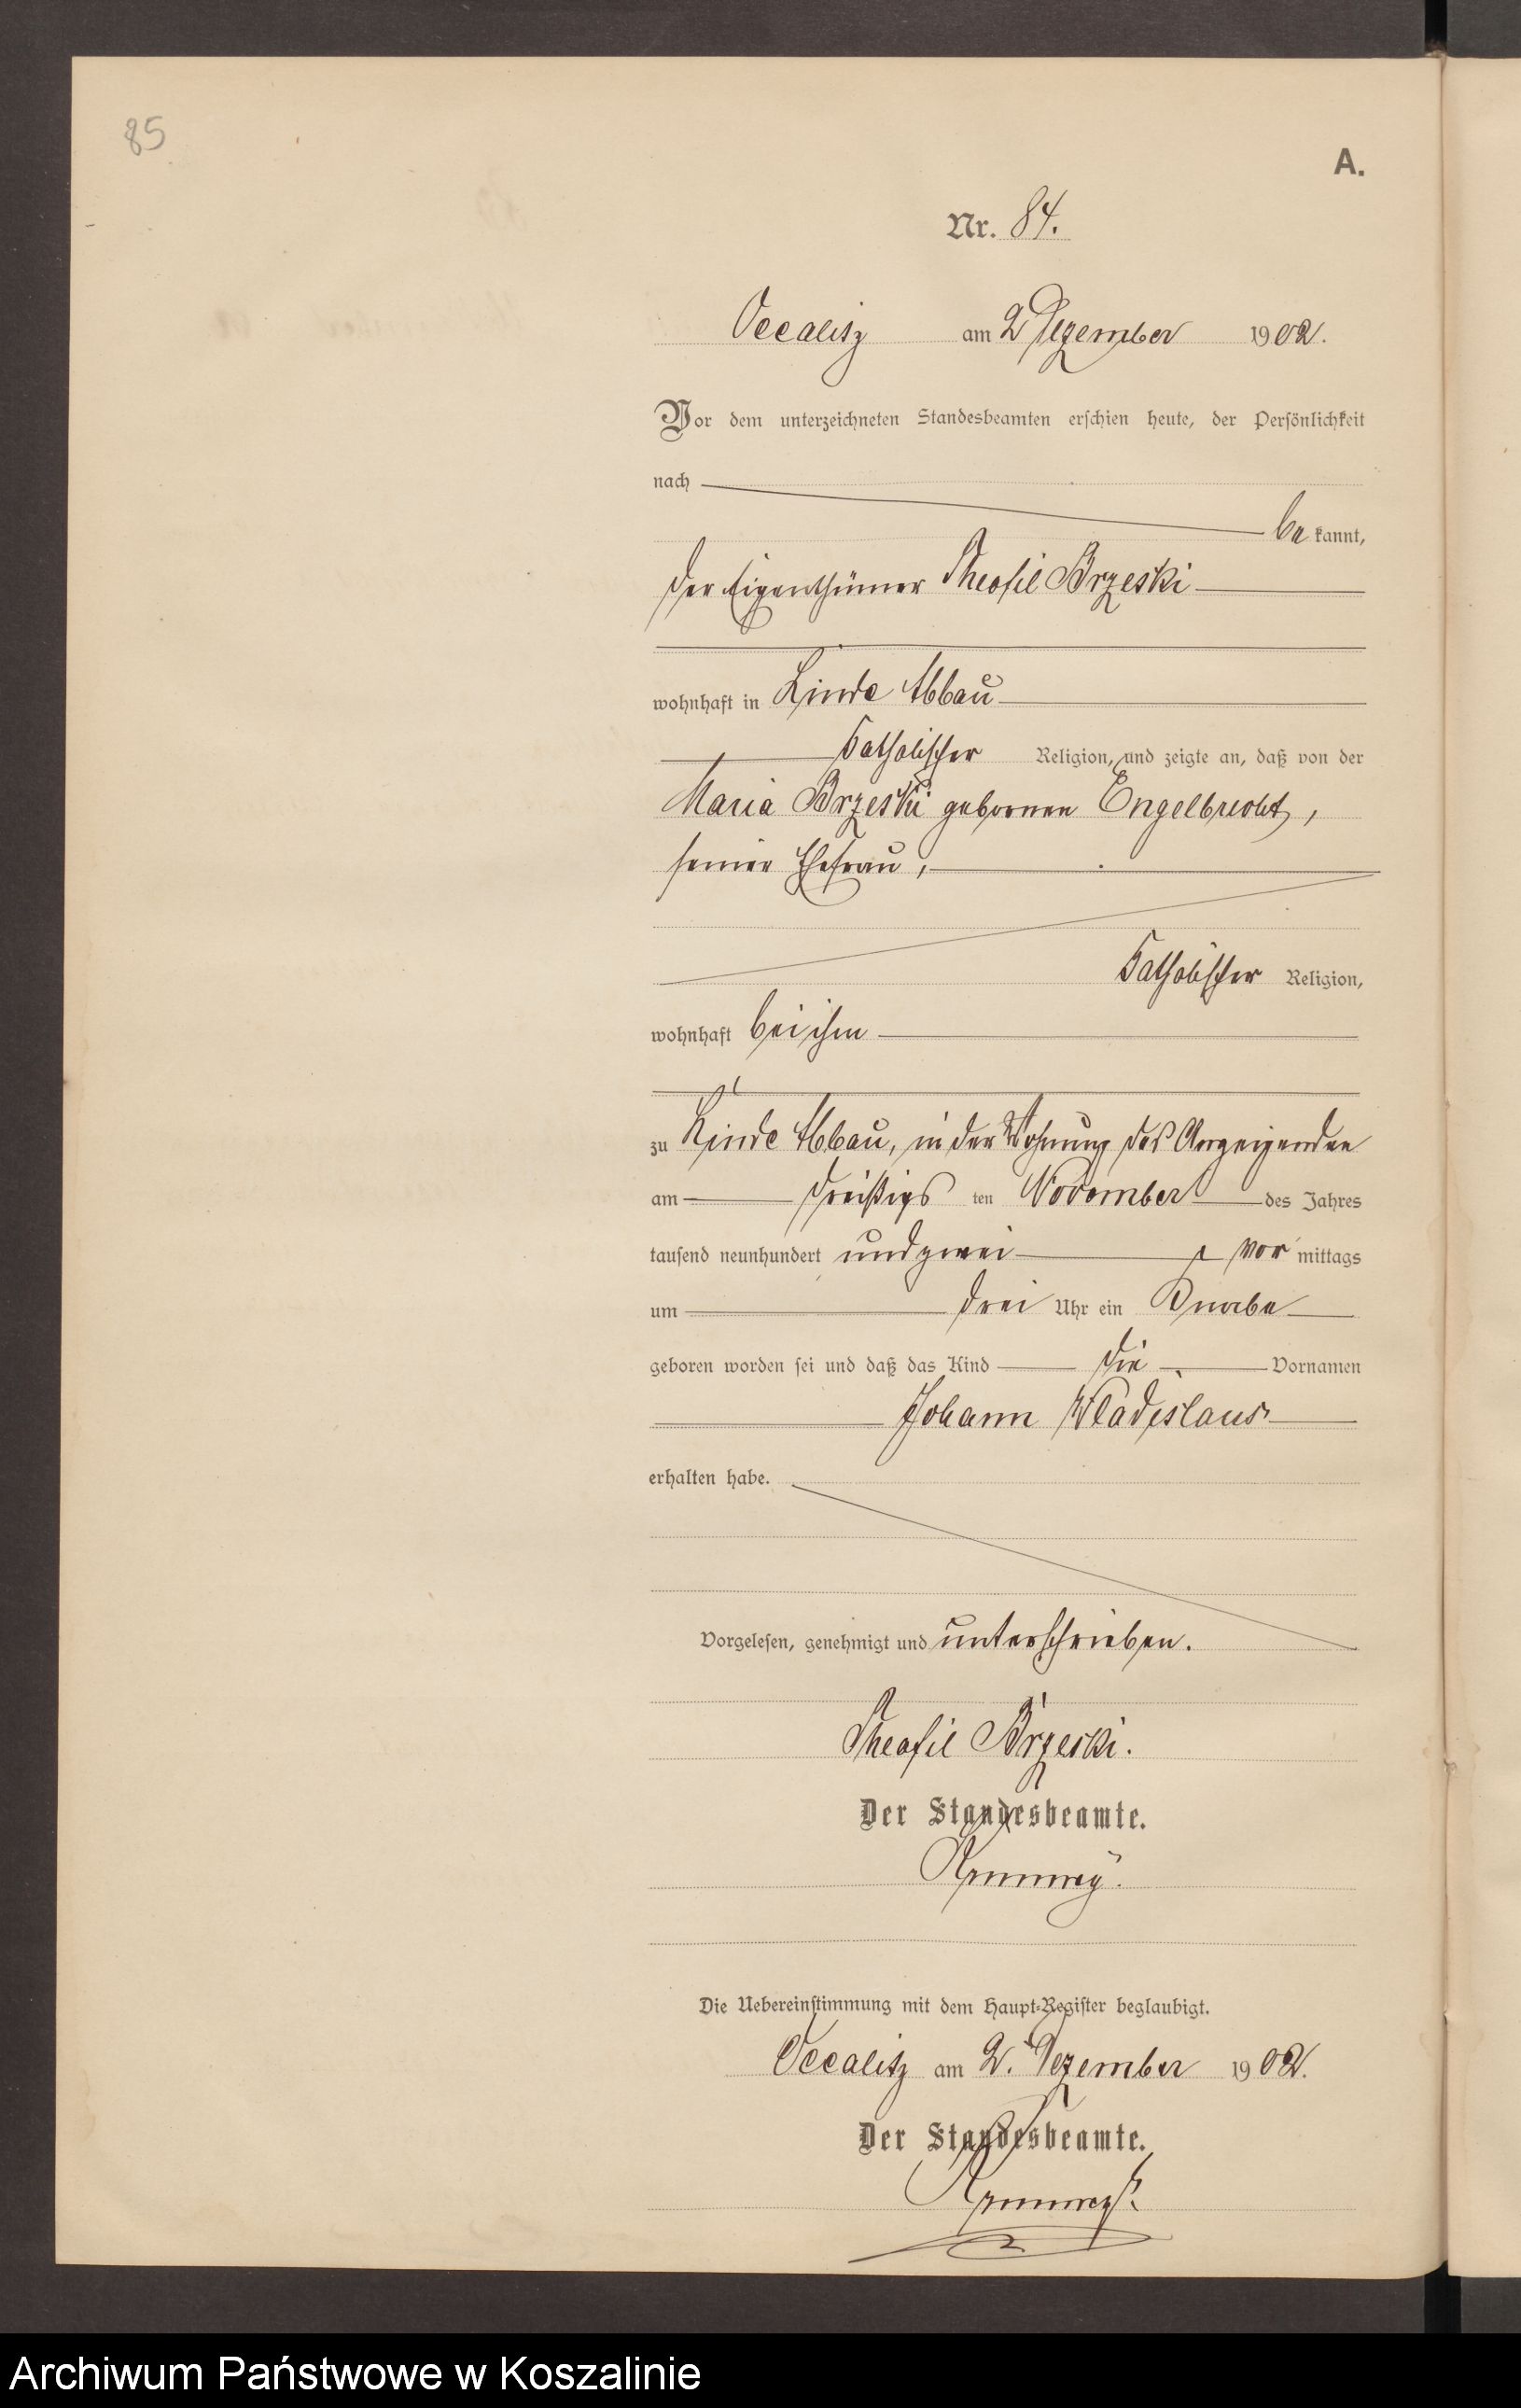 85
A.
Nr. 84.
Occalitz am 2 Dezember 1902.
Vor dem unterzeichneten Standesbeamten erschien heute, der Persönlichkeit
nach
be kannt,
der Eigenthümer Theofil Brzeski
wohnhaft in Linde Abbau
katholischer Religion, und zeigte an, daß von der
Maria Brzeski gebornen Engelbrecht,
seiner Ehefrau,
katholischer Religion,
wohnhaft bei ihm
zu Linde Abbau, in der Wohnung des Anzeigenden
am dreißigs ten November des Jahres
tausend neunhundert und zwei vor mittags
um drei Uhr ein Knabe
geboren worden sei und daß das Kind die Vornamen
Johann Wladislaus
erhalten habe.
Vorgelesen, genehmigt und unterschrieben.
Theofil Brzeski.
Der Standesbeamte.
Die Uebereinstimmung mit dem Haupt-Register beglaubigt.
Occalitz am 2. Dezember 1902.
Der Standesbeamte.
Archiwum Państwowe w Koszalinie